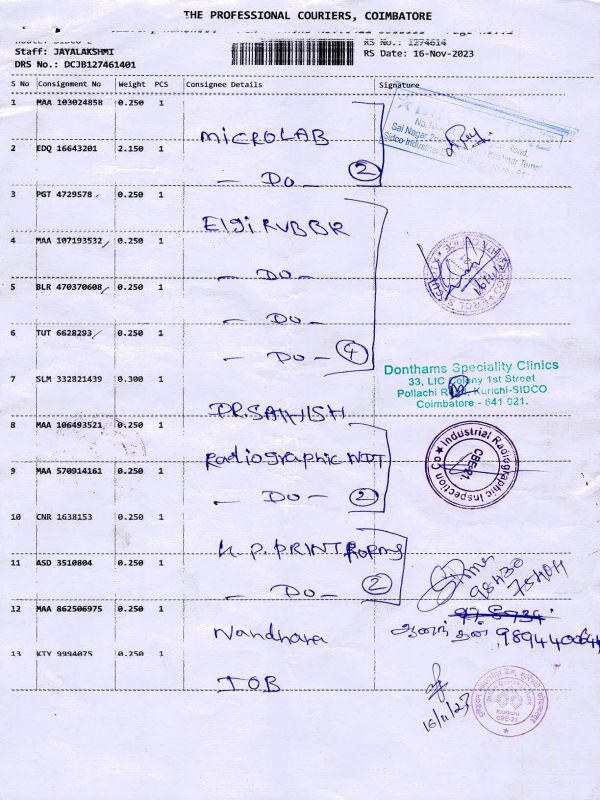 THE PROFESSIONAL COURIERS, COIMBATORE
RS No.: 1274614
Staff: JAYALAKSHMI
RS Date: 16-Nov-2023
DRS No.: DCJB127461401
S No Consignment No Weight PCS Consignee Details Signature
1 MAA 103024858 0.250 1
MICROLAB
2 EDQ 16643201 2.150 1
- DO - 2
3 PGT 4729578 0.250 1
Elgi RUBBR
4 MAA 107193532 0.250 1
- DO -
5 BLR 470370608 0.250 1
- DO -
6 TUT 6628293 0.250 1
- DO - 4
7 SLM 332821439 0.300 1
Donthams Speciality Clinics
33, LIC Colony 1st Street
Pollachi Road, Kurichi-SIDCO
Coimbatore - 641 021.
DR.SATHISH
8 MAA 106493521 0.250 1
Radiographic NDT
Industrial Radiographic Inspection Co
CBE-21
9 MAA 570914161 0.250 1
- DO - 2
10 CNR 1638153 0.250 1
K.P. PRINT
11 ASD 3510804 0.250 1
- DO - 2
98430
12 MAA 862506975 0.250 1
Nandhara
ஆனந்தன்
13 KTY 9994075 0.250 1
IOB
16/11/23
Kurichi
CBE-21